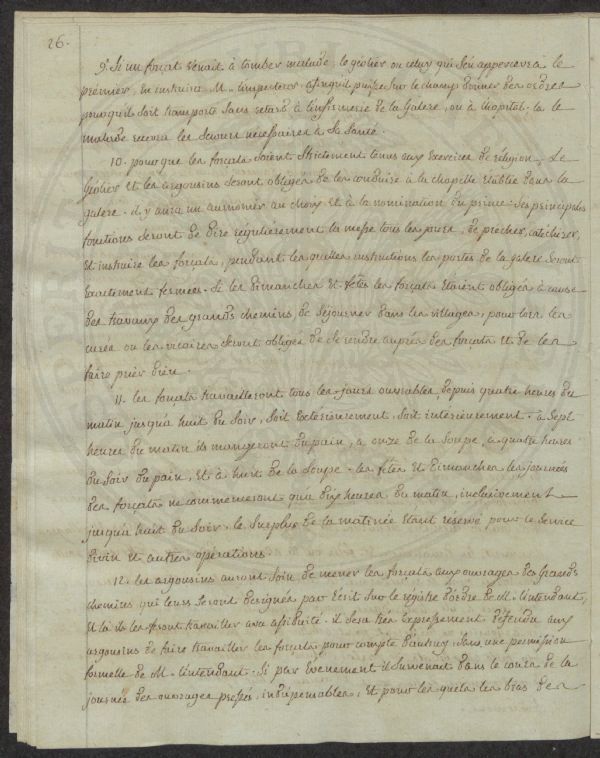 26.
9.° Si un forçat venait à tomber malade, le géolier ou celuy qui s'en appercevra le
premier, en instruira M. l'inspecteur afinqu'il puisse sur le champ donner des ordres
pourqu'il soit transporté sans retard à l'infirmerie de la Galere, ou à l'hôpital. là le
malade recevra les secours nécéssaires à sa santé.
10. pourque les forçats soient strictement tenus aux exercices de réligion. Le
Géolier et les argousins seront obligés de les conduire à la chapelle établie dans la
galere. il y aura un aumonier au choix et à la nomination du prince. Ses principales
fonctions seront de dire régulièrement la messe tous les jours, de prêcher, catéchiser,
et instruire les forçats, pendant les quelles instructions les portes de la galere seront
exactement fermées. Si les Dimanches et fêtes les forçats étaient obligés à cause
des travaux des grands chemins de séjourner dans les villages, pour lors les
curés ou les vicaires seront obligés de se rendre auprès des forçats et de les
faire prier Dieu.
11. les forçats travailleront tous les jours ouvrables depuis quatre heures du
matin jusqu'à huit du soir, soit extérieurement, soit intérieurement. à sept
heures du matin ils mangeront du pain, à onze de la soupe, à quatre heures
du soir du pain, et à huit de la soupe. les fêtes et Dimanches les journées
des forçats ne commenceront qu'à dix heures du matin, inclusivement
jusqu'à huit du soir. le surplus de la matinée étant réservé pour le service
divin et autres opérations.
12. les argousins auront soin de mener les forçats aux ouvrages des Grands
chemins qui leurs seront designés par écrit sur le régistre d'ordre de M. l'intendant,
et là ils les feront travailler avec assiduité. il sera très expressement défendu aux
argousins de faire travailler les forçats pour compte d'autruy, sans une permission
formelle de M. l'intendant. Si par évènement il survenait dans le cours de la
journée des ouvrages pressés, indispensables, et pour les quels les bras des